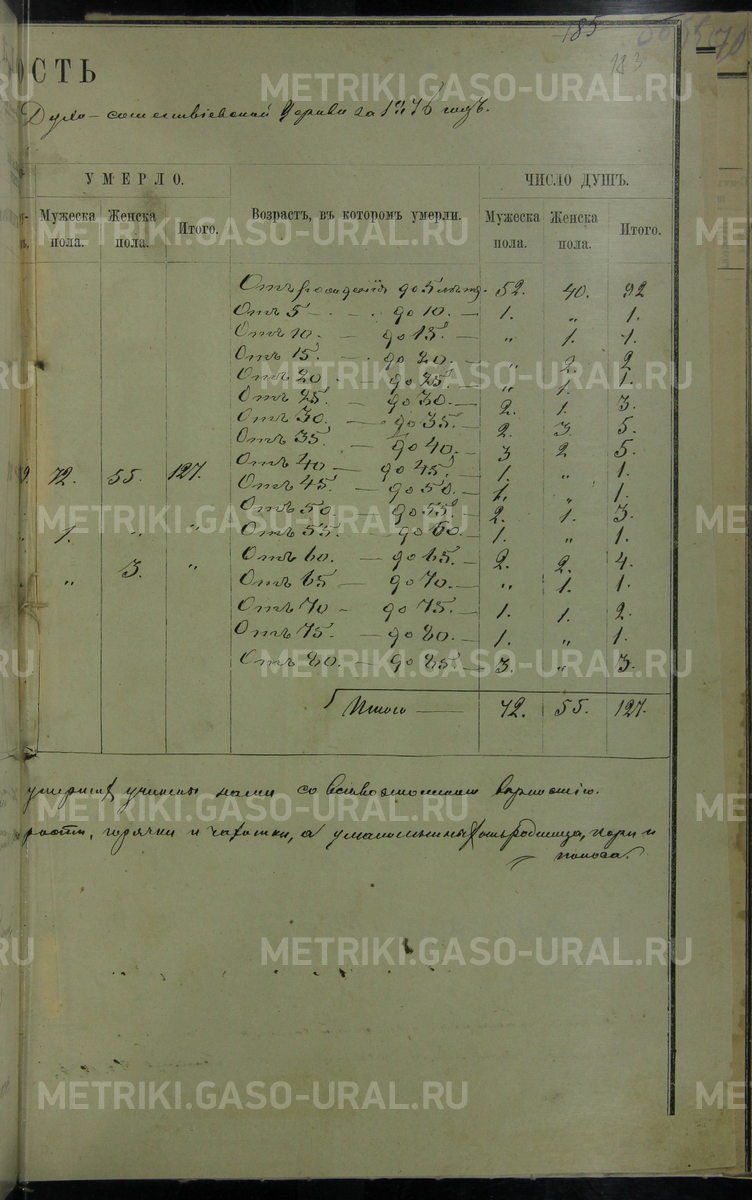 185
183
70
ОСТЬ
Духо-сошественской Церкви за 1876 годъ.
УМЕРЛО. ЧИСЛО ДУШЪ.
Мужеска пола. Женска пола. Итого. Возрастъ, въ которомъ умерли. Мужеска пола. Женска пола. Итого.
Отъ рожденія до 5 лѣтъ. 52. 40. 92
Отъ 5 — до 10. — 1. „ 1.
Отъ 10. — до 15. — „ 1. 1.
Отъ 15. — до 20. — „ 2. 2
Отъ 20 — до 25. — „ 1. 1.
Отъ 25. — до 30. — 2. 1. 3.
Отъ 30. — до 35. — 2. 3. 5.
Отъ 35. — до 40. — 3 2 5.
Отъ 40 — до 45. — 1. „ 1.
72. 55. 127. Отъ 45. — до 50. — 1. „ 1.
Отъ 50. — до 55. — 2. 1. 3.
1. „ „ Отъ 55. — до 60. — 1. „ 1.
Отъ 60. — до 65. — 2. 2. 4.
„ 3. „ Отъ 65 — до 70. — „ 1. 1.
Отъ 70 — до 75. — 1. 1. 2.
Отъ 75. — до 80. — 1. „ 1.
Отъ 80. — до 85. — 3. „ 3.
Итого — 72. 55. 127.
учинены нами со всевозможною вѣрностію.
горячки и чахотки, а у малолѣтныхъ отъ родимца, кори и
поноса.
METRIKI.GASO-URAL.RU